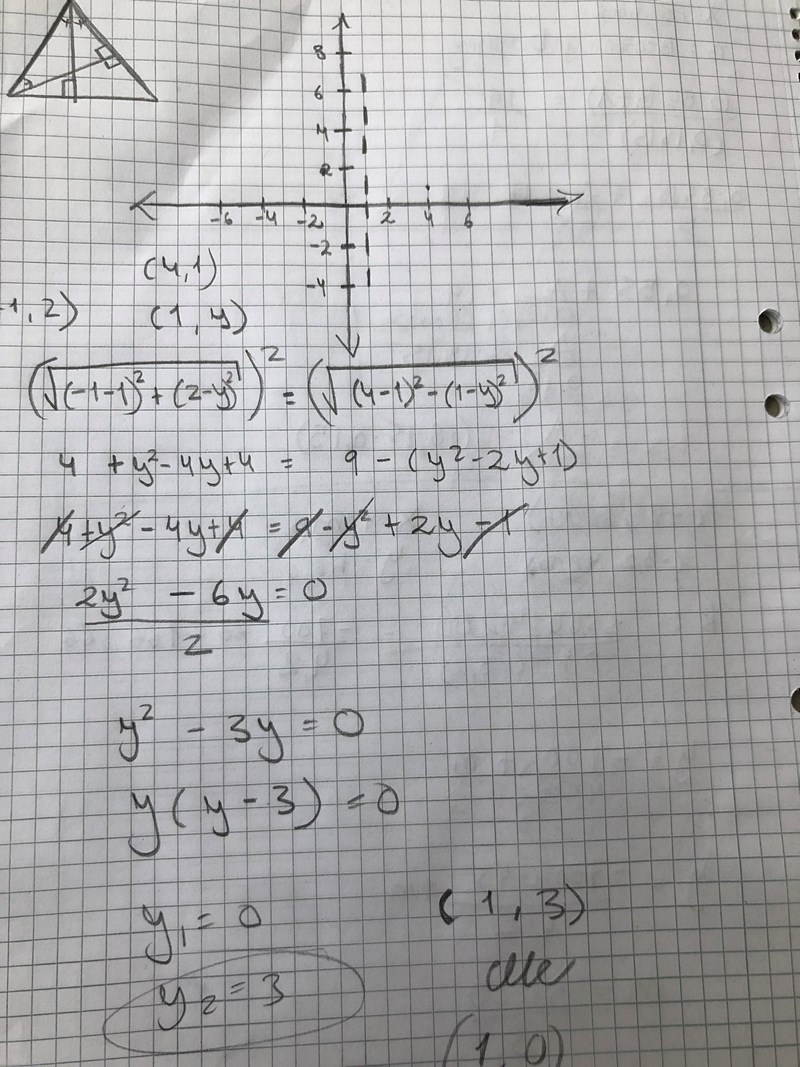 8
6
4
2
-6 -4 -2 2 4 6
-2
-4
(4,1)
-1,2) (1,y)
(√(-1-1)²+(2-y)²)² = (√(4-1)²-(1-y)²)²
4 +y²-4y+4 = 9 - (y²-2y+1)
4+y²-4y+4 = 9-y²+2y-1
2y² - 6y = 0
2
y² - 3y = 0
y(y-3) = 0
y₁ = 0 (1,3)
y₂ = 3
(1,0)